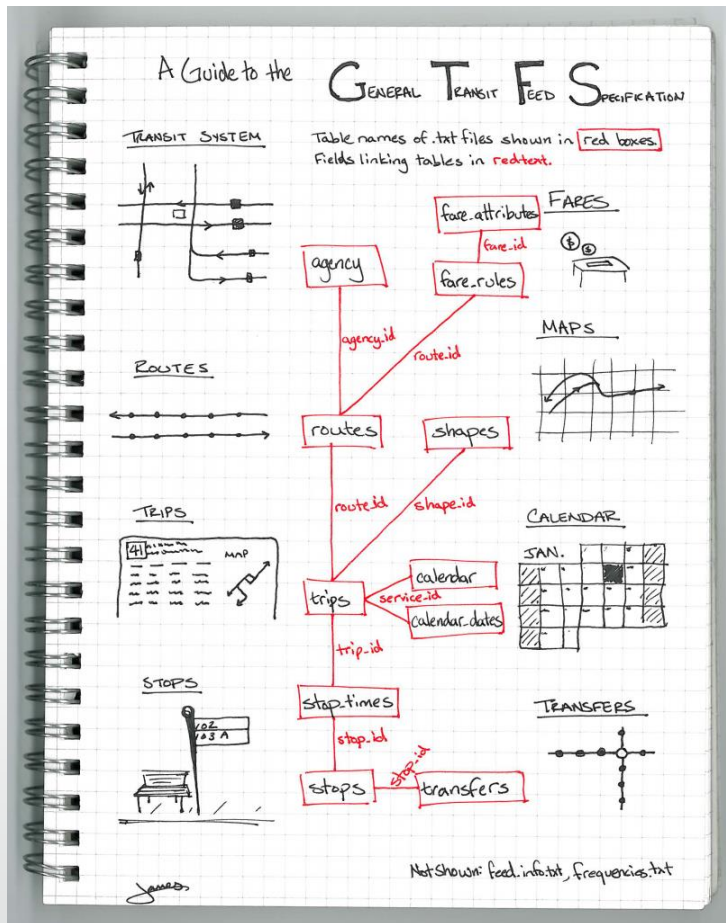 A Guide to the GENERAL TRANSIT FEED SPECIFICATION
TRANSIT SYSTEM
Table names of .txt files shown in red boxes.
Fields linking tables in red text.
fare_attributes
FARES
fare_id
$ $
agency
fare_rules
agency_id
route_id
MAPS
ROUTES
routes
shapes
route_id
shape_id
TRIPS
CALENDAR
41
MAP
JAN.
calendar
trips
service_id
calendar_dates
trip_id
STOPS
stop_times
TRANSFERS
102
103 A
stop_id
stop_id
stops
transfers
Not Shown: feed_info.txt, frequencies.txt
James